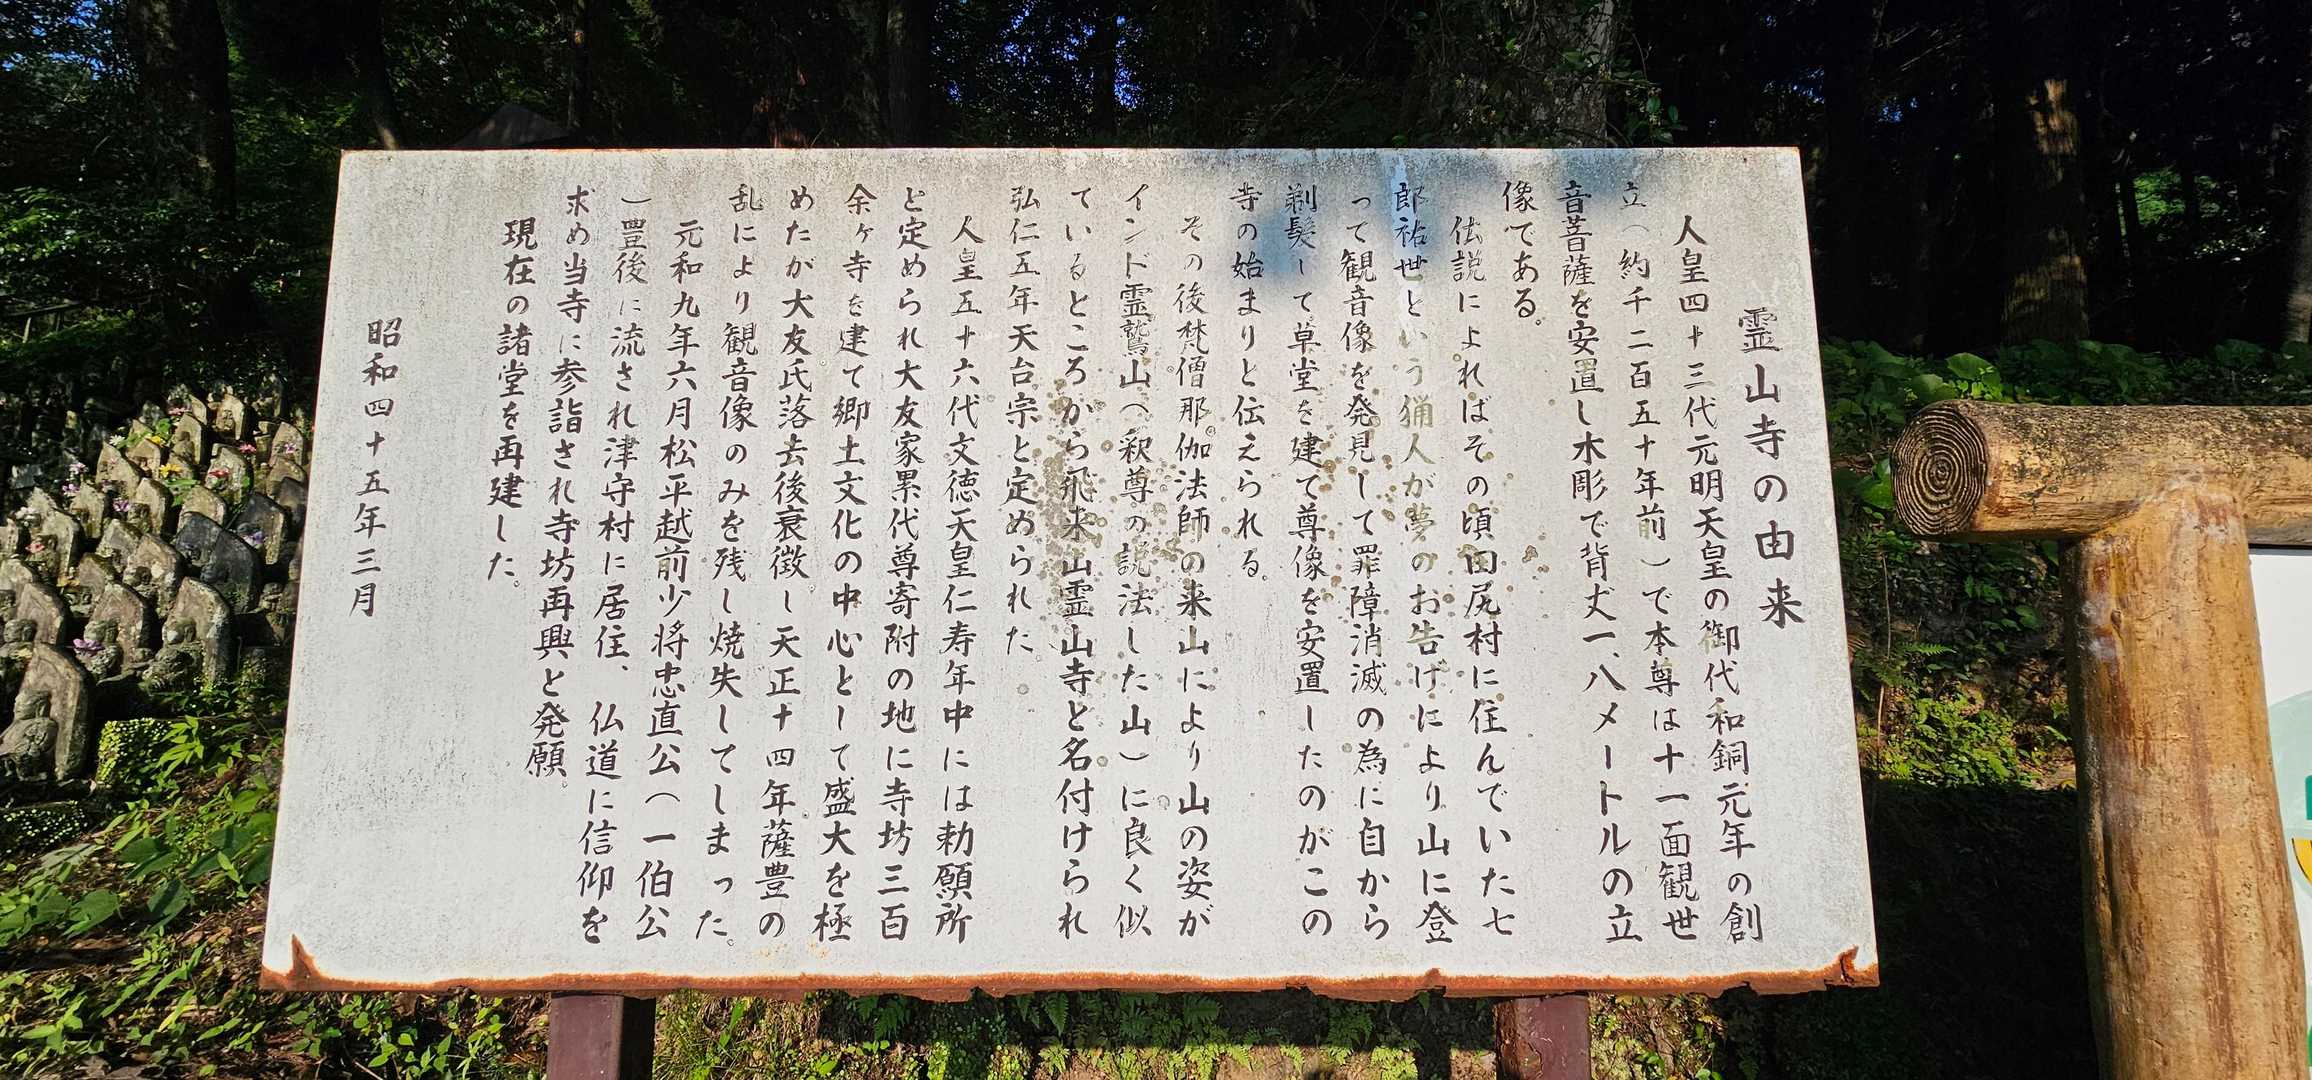 霊山寺の由来
人皇四十三代元明天皇の御代和銅元年の創
立（約千二百五十年前）で本尊は十一面観世
音菩薩を安置し木彫で背丈一、八メートルの立
像である。
伝説によればその頃田尻村に住んでいた七
郎祐世という猟人が夢のお告げにより山に登
って観音像を発見して罪障消滅の為に自から
剃髪して草堂を建て尊像を安置したのがこの
寺の始まりと伝えられる。
その後梵僧那伽法師の来山により山の姿が
インド霊鷲山（釈尊の説法した山）に良く似
ているところから飛来山霊山寺と名付けられ
弘仁五年天台宗と定められた
人皇五十六代文徳天皇仁寿年中には勅願所
と定められ大友家累代尊寄附の地に寺坊三百
余ヶ寺を建て郷土文化の中心として盛大を極
めたが大友氏落去後衰徴し天正十四年薩豊の
乱により観音像のみを残し焼失してしまった。
元和九年六月松平越前少将忠直公（一伯公
）豊後に流され津守村に居住、仏道に信仰を
求め当寺に参詣され寺坊再興と発願。
現在の諸堂を再建した。
昭和四十五年三月